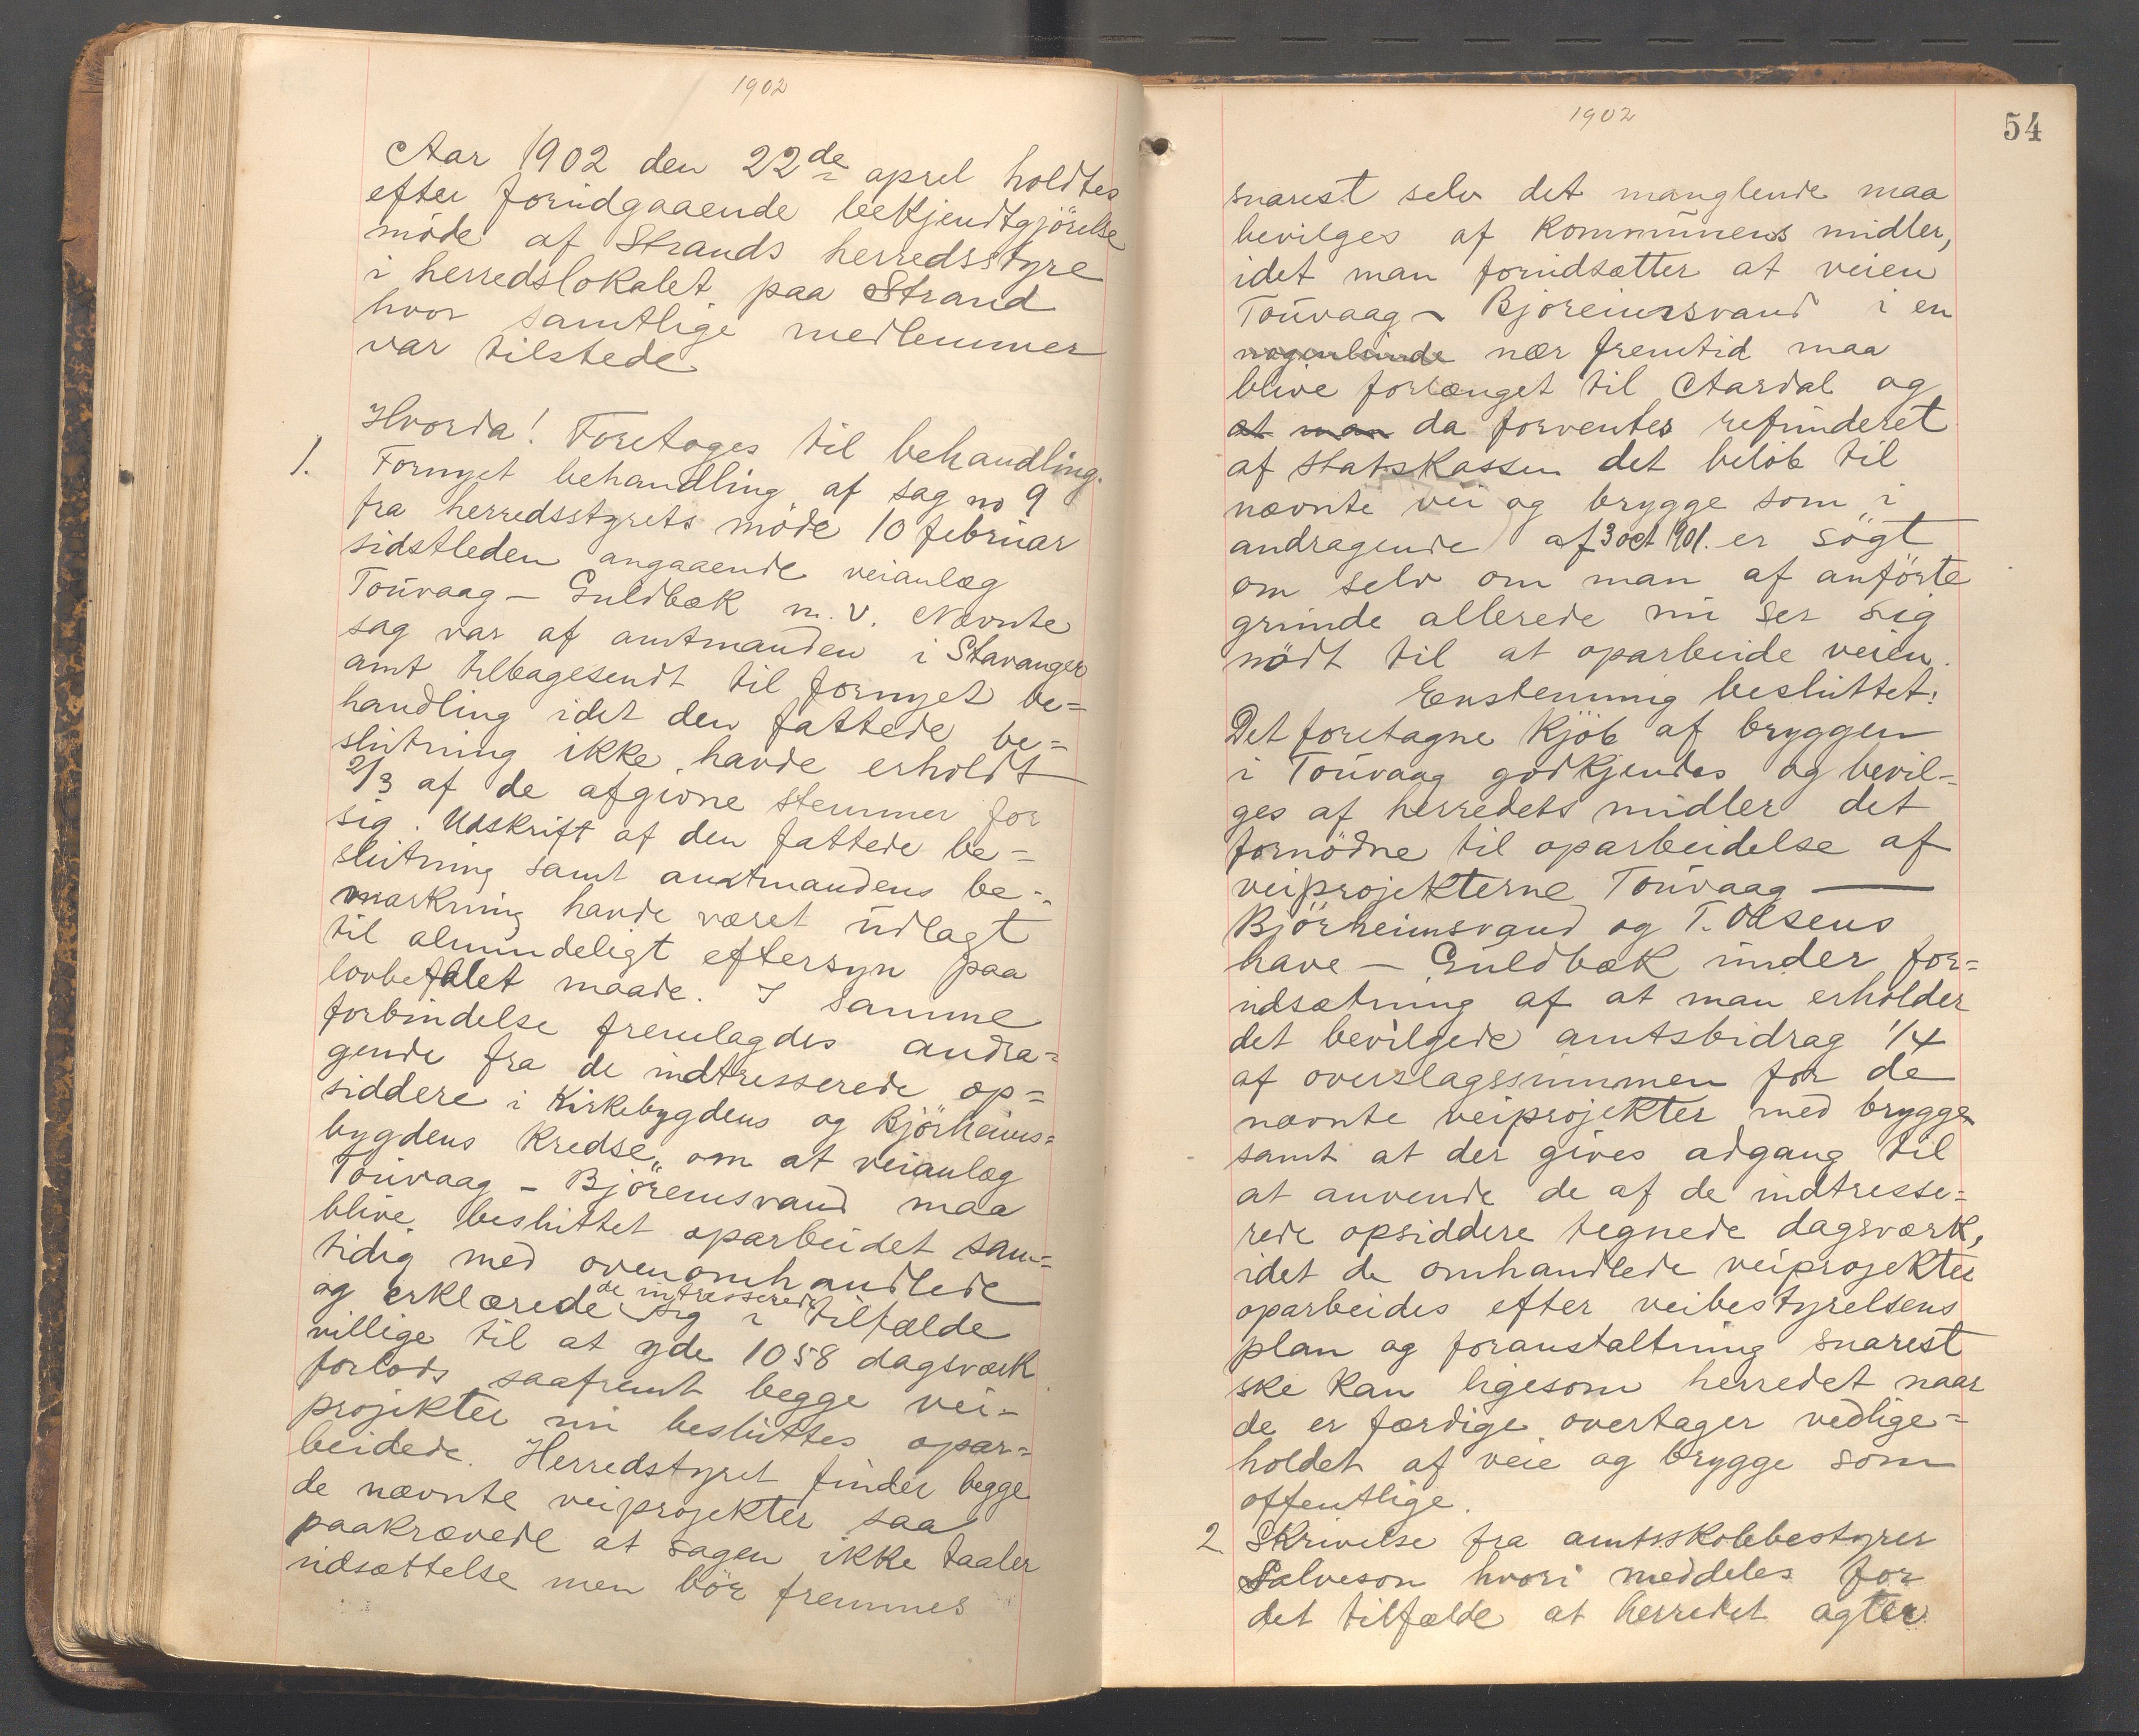 1902
Aar 1902 den 22de aprel holdtes
efter forudgaaende bekjendtgjörelse
möde af Strands herredsstyre
i herredslokalet paa Strand
hvor samtlige medlemmer
var tilstede
Hvorda! Foretoges til behandling.
1. Fornyet behandling af sag no 9
fra herredsstyrets möde 10 februar
sidstleden angaaende veianlæg
Touvaag – Guldbæk m. v. Nævnte
sag var af amtmanden i Stavanger
amt tilbagesendt til fornyet be=
handling idet den fattede be=
slutning ikke havde erholdt
2/3 af de afgivne stemmer for
sig. Udskrift af den fattede be=
slutning samt amtmandens be=
mærkning havde været udlagt
til almindeligt eftersyn paa
lovbefalet maade. I samme
forbindelse fremlagdes andra=
gende fra de indtresserede op=
siddere i Kirkebygdens og Björheims=
bygdens Kredse„ om at veianlæg
Touvaag – Björeimsvand maa
blive besluttet oparbeidet sam=
tidig med ovenomhandlede
og erklærede de intresserede sig i tilfælde
villige til at yde 1058 dagsværk
forlods saafremt begge vei=
projekter nu besluttes opar=
beidede. Herredstyret finder begge
de nævnte veiprojekter saa
paakrævede at sagen ikke taaler
udsættelse men bör fremmes
1902
54
snarest selv det manglende maa
bevilges af Kommunens midler,
idet man forudsætter at veien
Touvaag – Bjoreimsvand i en
nogenlunde nær fremtid maa
blive forlænget til Aardal og
at man da forventes refunderet
af statsKassen det belöb til
nævnte vei og brygge som i
andragende af 3 oct 1901. er sögt
om selv om man af anförte
grunde allerede nu ser sig
nödt til at oparbeide veien.
Enstemmig besluttet:
Det foretagne Kjöb af bryggen
i Touvaag godkjendes og bevil=
ges af herredets midler det
fornödne til oparbeidelse af
veiprojekterne Touvaag —
Björheimsvand og T. Olsens
have – Guldbæk under for=
udsætning af at man erholder
det bevilgede amtsbidrag 1/4
af overslagssummen for de
nævnte veiprojekter med brygge
samt at der gives adgang til
at anvende de af de indtresse=
rede opsiddere tegnede dagsværk,
idet de omhandlede veiprojekter
oparbeides efter veibestyrelsens
plan og foranstaltning snarest
ske kan ligesom herredet naar
de er færdige overtager vedlige=
holdet af veie og brygge som
offentlige.
2 Skrivelse fra amtsskolebestyrer
Salveson hvori meddeles for
det tilfælde at herredet agter